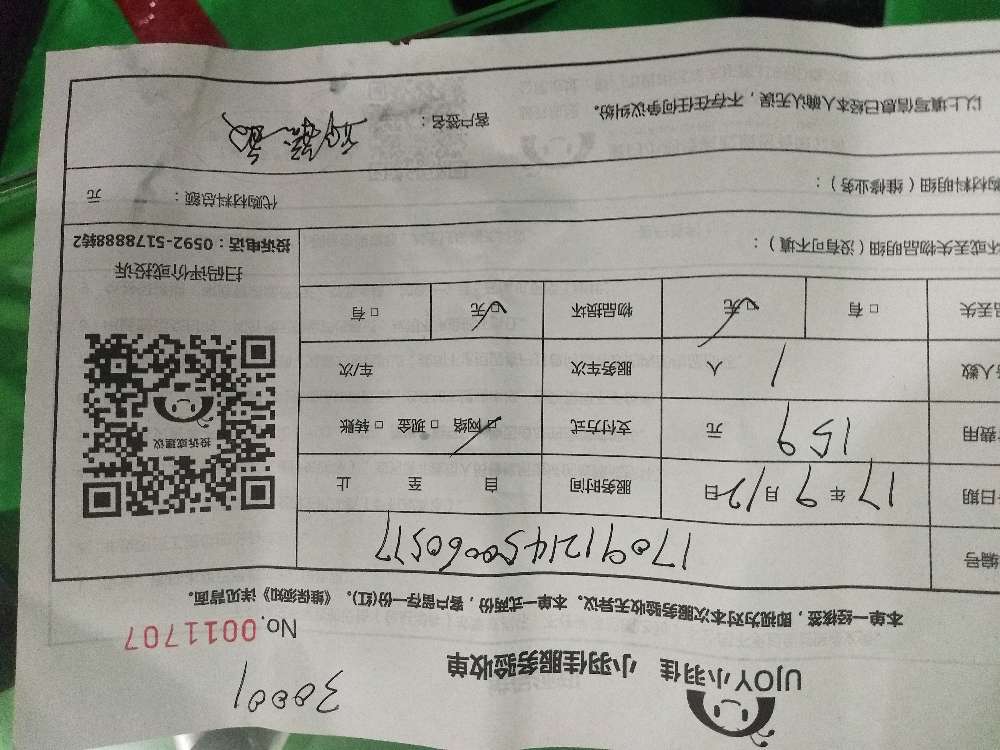 30001
UJOY小羽佳 小羽佳服务验收单
No.0011707
本单一经核签，即视为对本次服务验收无异议。本单一式两份，客户留存一份(红)。《维保须知》详见背面。
编号 170912145006057
日期 17年9月12日 服务时间 自 至 止
费用 159 元 支付方式 □网络 □现金 □转账
人数 1 人 服务车次 车/次
丢失 □有 □无 物品损坏 □无 □有
投诉或建议
扫码评价或投诉
投诉电话：0592-5178888转2
坏或丢失物品明细（没有可不填）：
购材料明细（维修业务）： 代购材料总额： 元
以上填写信息已经本人确认无误，不存在任何争议纠纷。 客户签名：